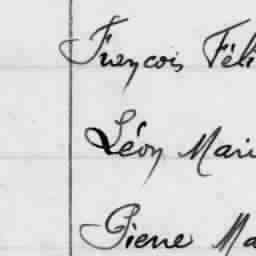 François Féli
Léon Mari
Pierre Ma